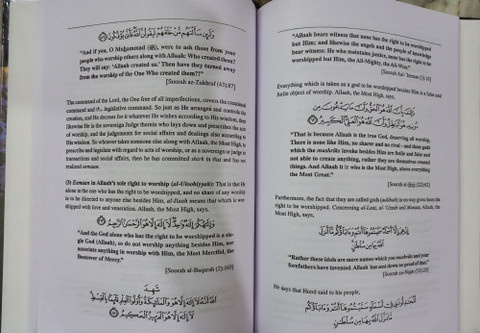 وَلَئِن سَأَلْتَهُم مَّنْ خَلَقَهُمْ لَيَقُولُنَّ اللَّهُ فَأَنَّىٰ يُؤْفَكُونَ
"And if you, O Muhammad (ﷺ), were to ask those from your
people who worship others along with Allaah: Who created them?
They will say: 'Allaah created us.' Then have they turned away
from the worship of the One Who created them?!"
[Soorah az-Zukhruf (43):87]
The command of the Lord, the One free of all imperfections, covers the command
and legislative command. So just as He arranges and controls the
creation, and He decrees for it whatever He wishes according to His wisdom, then
likewise He is the sovereign Judge therein who lays down and prescribes the acts
of worship, and the judgements for social affairs and dealings also according to
His wisdom. So whoever takes someone else along with Allaah, the Most High, to
prescribe and legislate with regard to acts of worship, or as a sovereign or judge in
transactions and social affairs, then he has committed shirk in that and has not
realized eemaan.
Eemaan in Allaah's sole right to worship (al-Uloohiyyah): That is that He
alone is the one who has the right to be worshipped, and no share of any worship
is to be directed to anyone else besides Him, al-Ilaah means that which is wor-
shipped with love and veneration. Allaah, the Most High, says,
وَإِلَٰهُكُمْ إِلَٰهٌ وَاحِدٌ لَّا إِلَٰهَ إِلَّا هُوَ الرَّحْمَٰنُ الرَّحِيمُ
"And the God alone who has the right to be worshipped is a sin-
gle God (Allaah), so do not worship anything besides Him, nor
associate anything in worship with Him, the Most Merciful, the
Bestower of Mercy."
[Soorah al-Baqarah (2):163]
شَهِدَ
اللَّهُ أَنَّهُ لَا إِلَٰهَ إِلَّا هُوَ وَالْمَلَائِكَةُ وَأُولُو الْعِلْمِ قَائِمًا بِالْقِسْطِ
لَا إِلَٰهَ إِلَّا هُوَ الْعَزِيزُ الْحَكِيمُ
"Allaah bears witness that none has the right to be worshipped
but Him; and likewise the angels and the people of knowledge
bear witness: He who maintains justice, none has the right to be
worshipped but Him, the All-Mighty, the All-Wise."
[Soorah Aal-'Imraan (3):18]
Everything which is taken as a god to be worshipped besides Him is a false and
futile object of worship. Allaah, the Most High, says,
ذَٰلِكَ بِأَنَّ اللَّهَ هُوَ الْحَقُّ وَأَنَّ مَا يَدْعُونَ مِن
دُونِهِ هُوَ الْبَاطِلُ وَأَنَّ اللَّهَ هُوَ الْعَلِيُّ الْكَبِيرُ
"That is because Allaah is the true God, deserving all worship.
There is none like Him, no sharer and no rival - and thee gods
which the mushriks invoke besides Him are futile and false and
not able to create anything, rather they are themselves created
things. And Allaah It is who is the Most High, alone everything
the Most Great."
[Soorah al-Hajj (22):62]
Furthermore, the fact that they are called gods (aalihah) in no way gives them the
right to be worshipped. Concerning al-Laat, al-'Uzzah and Manaat, Allaah, the
Most High, says,
إِنْ هِيَ إِلَّا أَسْمَاءٌ سَمَّيْتُمُوهَا أَنتُمْ وَآبَاؤُكُم مَّا أَنزَلَ
اللَّهُ بِهَا مِن سُلْطَانٍ
"Rather these idols are mere names which you mushriks and your
forefathers have invented. Allaah has sent down no proof of that."
[Soorah an-Najm (53):23]
He says that Hood said to his people,
أَتُجَادِلُونَنِي فِي أَسْمَاءٍ سَمَّيْتُمُوهَا أَنتُمْ وَآبَاؤُكُم
مَّا نَزَّلَ اللَّهُ بِهَا مِن سُلْطَانٍ